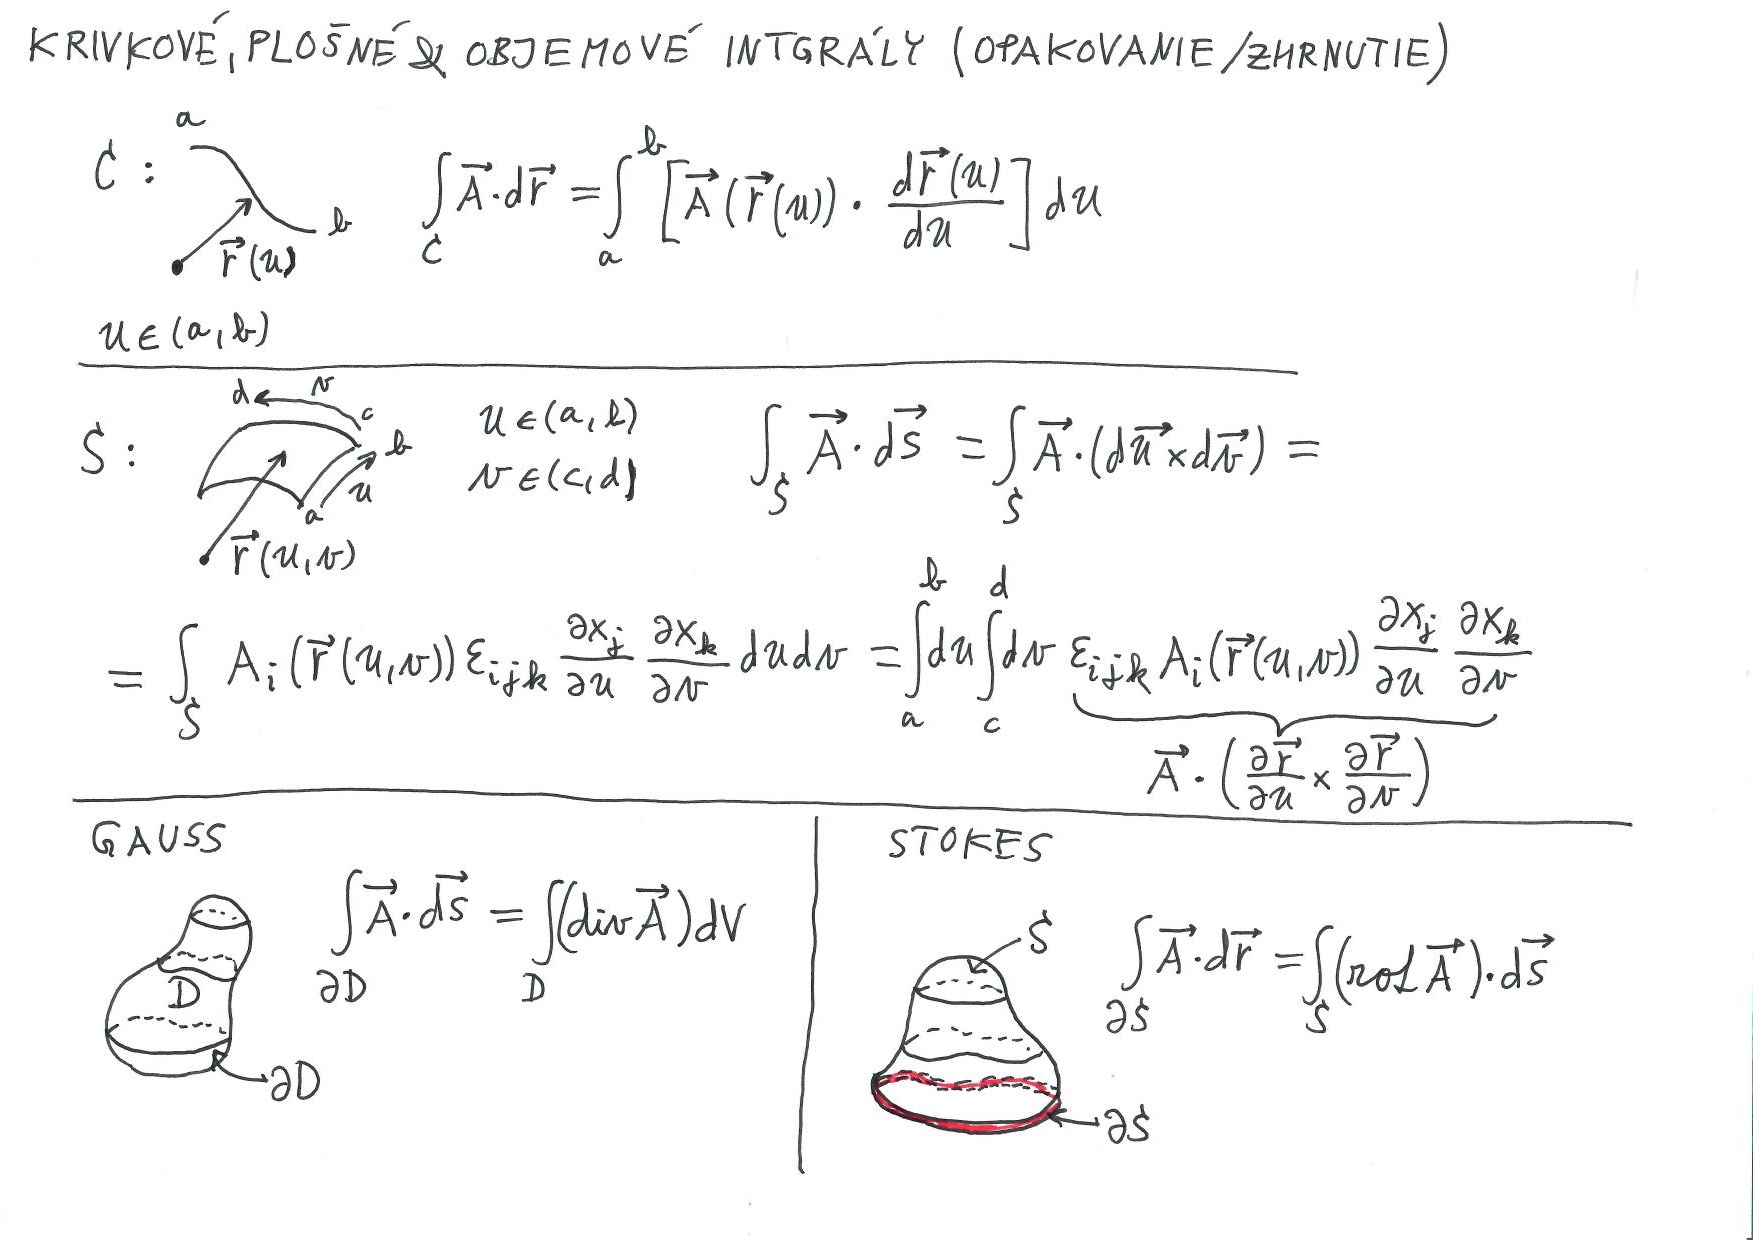 KRIVKOVÉ, PLOŠNÉ & OBJEMOVÉ INTGRÁLY (OPAKOVANIE/ZHRNUTIE)
C: a b r⃗(u) ∫_C A⃗·dr⃗ = ∫_a^b [A⃗(r⃗(u)) · dr⃗(u)/du] du
u∈(a,b)
S: d v c b u a r⃗(u,v) u∈(a,b) v∈(c,d) ∫_S A⃗·ds⃗ = ∫_S A⃗·(du⃗×dv⃗) =
= ∫_S A_i(r⃗(u,v)) ε_ijk ∂x_j/∂u ∂x_k/∂v du dv = ∫_a^b du ∫_c^d dv ε_ijk A_i(r⃗(u,v)) ∂x_j/∂u ∂x_k/∂v
A⃗·(∂r⃗/∂u × ∂r⃗/∂v)
GAUSS
D ∂D ∫_∂D A⃗·ds⃗ = ∫_D (div A⃗) dV
STOKES
S ∂S ∫_∂S A⃗·dr⃗ = ∫_S (rot A⃗)·ds⃗